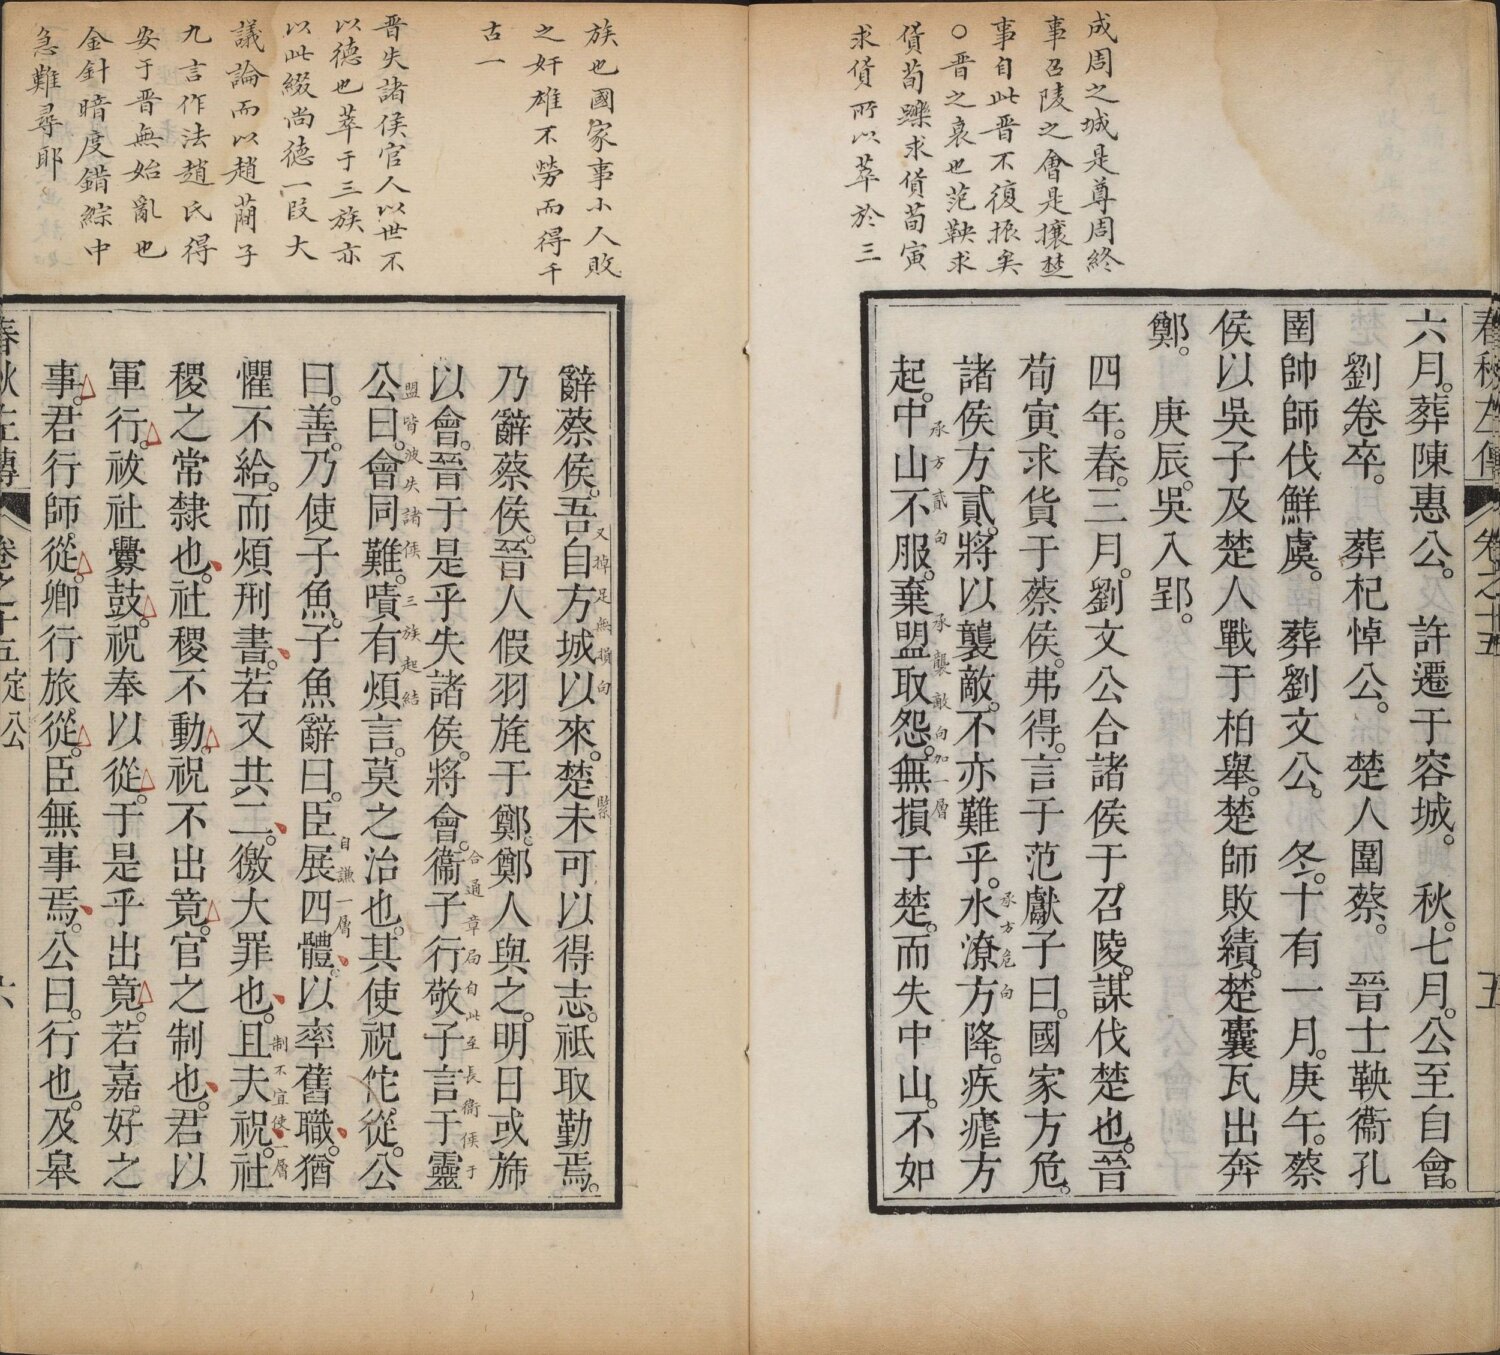 成周之城是尊周終
事召陵之會是攘楚
事自此晉不復振矣
○晉之衰也范鞅求
貨荀躒求貨荀寅
求貨所以萃於三
春秋左傳 卷之十五 五
六月。葬陳惠公。 許遷于容城。 秋。七月。公至自會。
劉卷卒。 葬杞悼公。 楚人圍蔡。 晉士鞅衞孔
圉帥師伐鮮虞。 葬劉文公。 冬。十有一月。庚午。蔡
侯以吳子及楚人戰于柏舉。楚師敗績。楚囊瓦出奔
鄭。 庚辰。吳入郢。
四年。春。三月。劉文公合諸侯于召陵。謀伐楚也。晉
荀寅求貨于蔡侯。弗得。言于范獻子曰。國家方危。
諸侯方貳。將以襲敵。不亦難乎。水潦方降。疾瘧方
承方危向
承方貳向 承襲敵向加一層
起。中山不服。棄盟取怨。無損于楚。而失中山。不如
族也國家事小人敗
之奸雄不勞而得千
古一
晋失諸侯官人以世不
以德也萃于三族亦
以此綴尚德一段大
議論而以趙蕳子
九言作法趙氏得
安于晋無始亂也
金針暗度錯綜中
急難尋耶
辭蔡侯。吾自方城以來。楚未可以得志。祗取勤焉。
又掉足無損向 緊
乃辭蔡侯。晉人假羽旄于鄭。鄭人與之。明日或斾
以會。晉于是乎失諸侯。將會。衞子行敬子言于靈
合通章局自此至長衞侯于
盟皆波失諸侯三族起結
公曰。會同難。嘖有煩言。莫之治也。其使祝佗從。公
曰。善。乃使子魚。子魚辭曰。臣展四體。以率舊職。猶
自謙一層
懼不給。而煩刑書。若又共二。徼大罪也。且夫祝。社
制不宜使一層
稷之常隸也。社稷不動。祝不出竟。官之制也。君以
軍行。祓社釁鼓。祝奉以從。于是乎出竟。若嘉好之
事。君行師從。卿行旅從。臣無事焉。公曰。行也。及皋
春秋左傳 卷之十五 定公 六